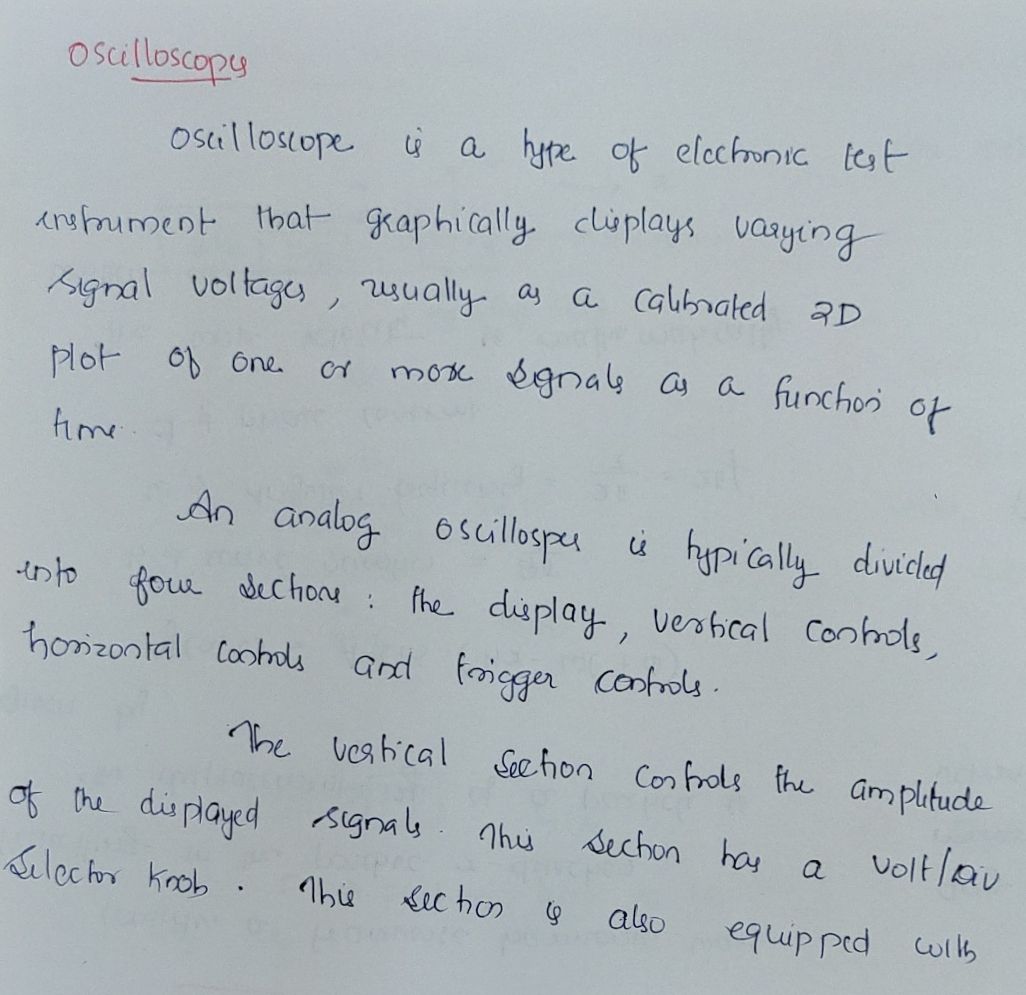 Oscilloscopy
Oscilloscope is a type of electronic test
instrument that graphically displays varying
signal voltages, usually as a calibrated 2D
plot of one or more signals as a function of
time.
An analog oscillospes is typically divided
into four sections : the display, vertical controls,
horizontal controls and trigger controls.
The vertical section controls the amplitude
of the displayed signals. This section has a volt/div
selector knob. This section is also equipped with